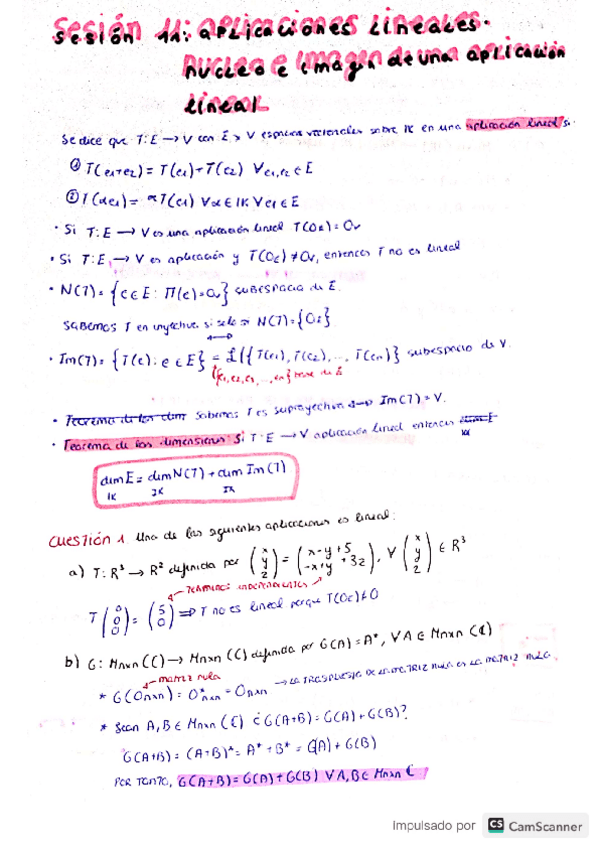 Sesión 11: aplicaciones lineales.
Nucleo e imagen de una aplicación
lineal
Se dice que T: E → V con E y V espacios vectoriales sobre K en una aplicación lineal si:
① T(e1+e2) = T(e1)+T(e2) ∀e1,e2 ∈ E
② T(αe1) = αT(e1) ∀α∈K ∀e1∈E
· Si T: E → V es una aplicación lineal T(0E) = 0V
· Si T: E → V es aplicación y T(0E) ≠ 0V, entonces T no es lineal
· N(T) = {e ∈ E: T(e)=0V} subespacio de E.
SABEMOS T en inyectiva si solo si N(T)={0E}
· Im(T) = {T(e): e ∈ E} = L({T(e1), T(e2), ..., T(en)} subespacio de V.
{e1,e2,e3,...,en} base de E
· Teorema de las dim Sabemos T es suprayectiva ↔ Im(T) = V.
· Teorema de las dimensiones Si T: E → V aplicación lineal entonces dim E
K
dim E = dim N(T) + dim Im(T)
K K K
CUESTIÓN 1 Una de las siguientes aplicaciones es lineal:
a) T: R³ → R² definida por (x y z) = (x-y+5 -x+y+3z), ∀ (x y z) ∈ R³
TÉRMINOS INDEPENDIENTES
T (0 0 0) = (5 0) ⇒ T no es lineal porque T(0E)≠0
b) G: Mnxn (C) → Mnxn (C) definida por G(A) = A*, ∀ A ∈ Mnxn (C)
matriz nula
* G(0nxn) = 0*nxn = 0nxn → LA TRASPUESTA DE LA MATRIZ NULA ES LA MATRIZ NULA
* Sean A, B ∈ Mnxn (C) ¿G(A+B) = G(A) + G(B)?
G(A+B) = (A+B)* = A* + B* = G(A) + G(B)
POR TANTO, G(A+B) = G(A) + G(B) ∀ A, B ∈ Mnxn C
Impulsado por CS CamScanner